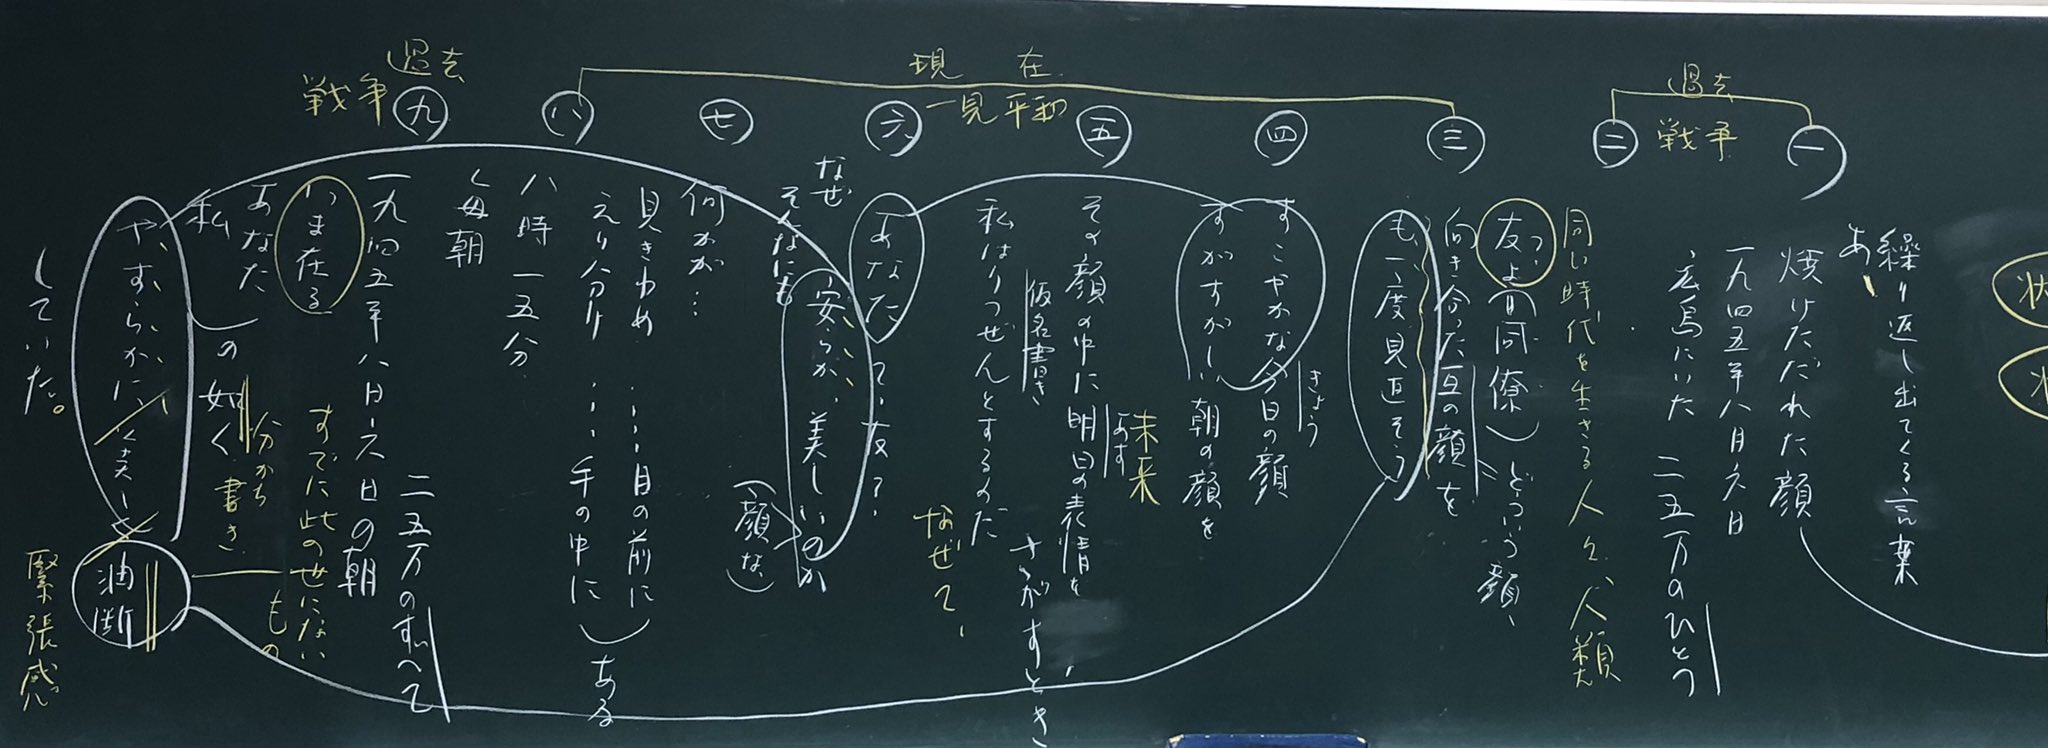 過去
戦争
一
二
現在
一見平和
三
四
五
六
七
八
過去
戦争
九
状
繰り返し出てくる言葉
あ
焼けただれた顔
一九四五年八月六日
広島にいた 二五万のひとつ
同い時代を生きる人々、人類
友よ(同僚)どういう顔、
向き合った互の顔を
も一度見直そう
すこやかな今日の顔
きょう
すがすがしい朝の顔を
未来
あす
その顔の中に明日の表情をさがすとき
仮名書き
私はりつぜんとするのだ
なぜて、
あなた
て、友?
なぜ
そんなにも
安らか、美しいのか
(顔な、)
何か…
見きわめ……目の前に
えり分け……手の中に)ある
八時一五分
く毎朝
二五万のすべて
一九四五年八月六日の朝
いま在る
すでに此の世にない
もの
あなた
私
の如く
分かち書き
やすらかに美しく
油断
していた。
緊張感